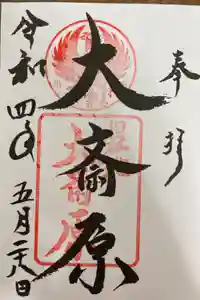 奉拝
大斎原
令和四年五月二八日
大斎原